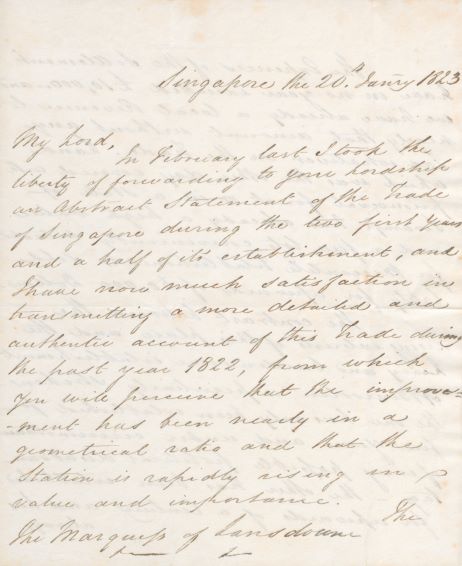 Singapore the 20th Jan'ry 1823
My Lord,
In February last I took the
liberty of forwarding to your Lordship
an Abstract Statement of the Trade
of Singapore during the two first Years
and a half of its establishment, and
I have now much satisfaction in
transmitting a more detailed and
authentic account of this Trade during
the past year 1822, from which
you will perceive that the improve=
-ment has been nearly in a
geometrical ratio and that the
Station is rapidly rising in
value and importance.
The
The Marquess of Lansdowne